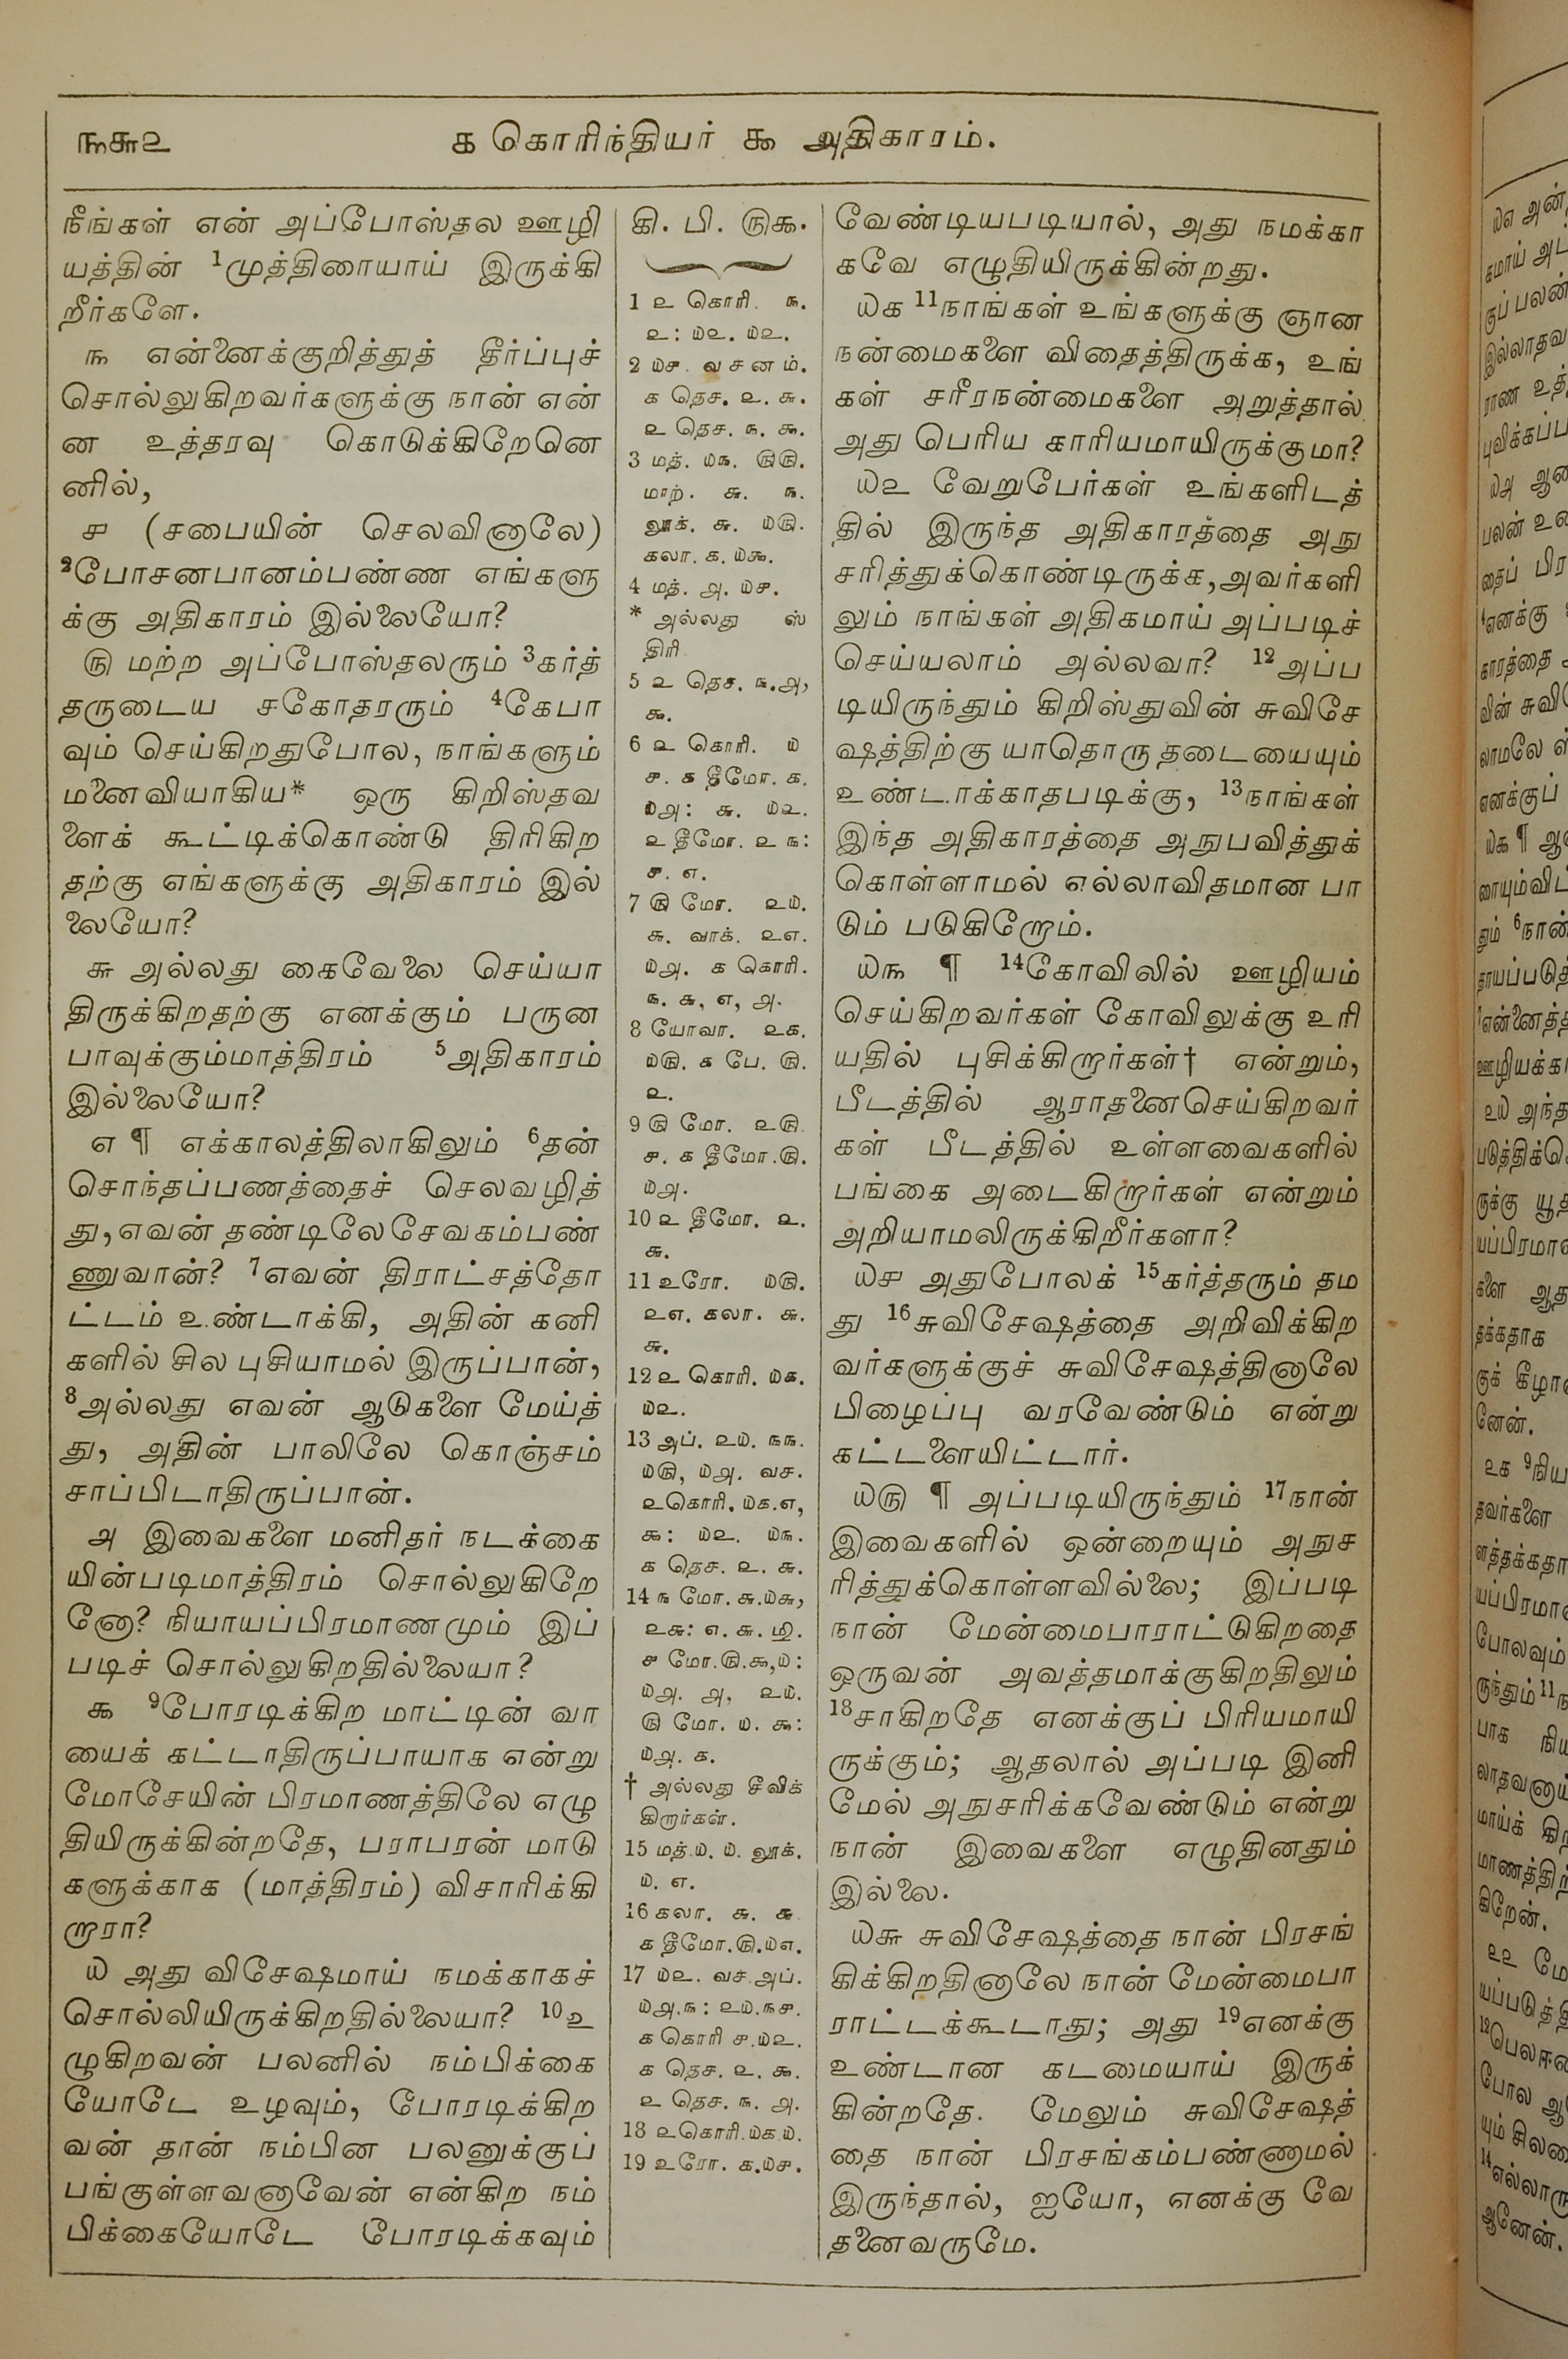 ௩௬௨
௧ கொரிந்தியர் ௯ அதிகாரம்.
நீங்கள் என் அப்போஸ்தல ஊழி
யத்தின் 1முத்திரையாய் இருக்கி
றீர்களே.
௩ என்னைக்குறித்துத் தீர்ப்புச்
சொல்லுகிறவர்களுக்கு நான் என்
ன உத்தரவு கொடுக்கிறேனெ
னில்,
௪ (சபையின் செலவினாலே)
2போசனபானம்பண்ண எங்களு
க்கு அதிகாரம் இல்லையோ?
௫ மற்ற அப்போஸ்தலரும் 3கர்த்
தருடைய சகோதரரும் 4கேபா
வும் செய்கிறதுபோல, நாங்களும்
மனைவியாகிய* ஒரு கிறிஸ்தவ
ளைக் கூட்டிக்கொண்டு திரிகிற
தற்கு எங்களுக்கு அதிகாரம் இல்
லையோ?
௬ அல்லது கைவேலை செய்யா
திருக்கிறதற்கு எனக்கும் பருன
பாவுக்கும்மாத்திரம் 5அதிகாரம்
இல்லையோ?
௭ ¶ எக்காலத்திலாகிலும் 6தன்
சொந்தப்பணத்தைச் செலவழித்
து, எவன் தண்டிலேசேவகம்பண்
ணுவான்? 7எவன் திராட்சத்தோ
ட்டம் உண்டாக்கி, அதின் கனி
களில் சில புசியாமல் இருப்பான்,
8அல்லது எவன் ஆடுகளை மேய்த்
து, அதின் பாலிலே கொஞ்சம்
சாப்பிடாதிருப்பான்.
௮ இவைகளை மனிதர் நடக்கை
யின்படிமாத்திரம் சொல்லுகிறே
னோ? நியாயப்பிரமாணமும் இப்
படிச் சொல்லுகிறதில்லையா?
௯ 9போரடிக்கிற மாட்டின் வா
யைக் கட்டாதிருப்பாயாக என்று
மோசேயின் பிரமாணத்திலே எழு
தியிருக்கின்றதே, பராபரன் மாடு
களுக்காக (மாத்திரம்) விசாரிக்கி
றாரா?
௰ அது விசேஷமாய் நமக்காகச்
சொல்லியிருக்கிறதில்லையா? 10உ
ழுகிறவன் பலனில் நம்பிக்கை
யோடே உழவும், போரடிக்கிற
வன் தான் நம்பின பலனுக்குப்
பங்குள்ளவனாவேன் என்கிற நம்
பிக்கையோடே போரடிக்கவும்
கி. பி. ௫௯.
1 ௨ கொரி. ௩.
௨: ௰௨. ௰௨.
2 ௰௪. வசனம்.
௧ தெச. ௨. ௬.
௨ தெச. ௩. ௯.
3 மத். ௰௩. ௫௫.
மாற். ௬. ௩.
லூக். ௬. ௰௫.
கலா. ௧. ௰௯.
4 மத். ௮. ௰௪.
* அல்லது ஸ்
திரி
5 ௨ தெச. ௩.௮,
௯.
6 ௨ கொரி. ௰
௪. ௧ தீமோ. ௧.
௰௮: ௬. ௰௨.
௨ தீமோ. ௨ ௩:
௪. ௭.
7 ௫ மோ. ௨௰.
௬. வாக். ௨௭.
௰௮. ௧ கொரி.
௩. ௬, ௭, ௮.
8 யோவா. ௨௧.
௰௫. ௧ பே. ௫.
௨.
9 ௫ மோ. ௨௫.
௪. ௧ தீமோ.௫.
௰௮.
10 ௨ தீமோ. ௨.
௬.
11 உரோ. ௰௫.
௨௭. கலா. ௬.
௬.
12 ௨ கொரி. ௰௧.
௰௨.
13 அப். ௨௰. ௩௩.
௰௫, ௰௮. வச.
௨கொரி. ௰௧.௭,
௯: ௰௨. ௰௩.
௧ தெச. ௨. ௬.
14 ௩ மோ. ௬.௰௬,
௨௬: ௭. ௬.
௪ மோ.௫.௯,௰:
௰௮. ௮, ௨௰.
௫ மோ. ௰. ௯:
௰௮. ௧.
† அல்லது சீவிக்
கிறார்கள்.
15 மத்.௰. ௰. லூக்.
௰. ௭.
16 கலா. ௬. ௬
௧ தீமோ.௫.௰௭.
17 ௰௨. வச.அப்.
௰௮.௩: ௨௰.௩௪.
௧ கொரி ௪.௰௨.
௧ தெச. ௨. ௯.
௨ தெச. ௩. ௮.
18 ௨கொரி.௰௧.௰.
19 உரோ. ௧.௰௪.
வேண்டியபடியால், அது நமக்கா
கவே எழுதியிருக்கின்றது.
௰௧ 11நாங்கள் உங்களுக்கு ஞான
நன்மைகளை விதைத்திருக்க, உங்
கள் சரீரநன்மைகளை அறுத்தால்
அது பெரிய காரியமாயிருக்குமா?
௰௨ வேறுபேர்கள் உங்களிடத்
தில் இருந்த அதிகாரத்தை அநு
சரித்துக்கொண்டிருக்க, அவர்களி
லும் நாங்கள் அதிகமாய் அப்படிச்
செய்யலாம் அல்லவா? 12அப்ப
டியிருந்தும் கிறிஸ்துவின் சுவிசே
ஷத்திற்கு யாதொரு தடையையும்
உண்டாக்காதபடிக்கு, 13நாங்கள்
இந்த அதிகாரத்தை அநுபவித்துக்
கொள்ளாமல் எல்லாவிதமான பா
டும் படுகிறோம்.
௰௩ ¶ 14கோவிலில் ஊழியம்
செய்கிறவர்கள் கோவிலுக்கு உரி
யதில் புசிக்கிறார்கள்† என்றும்,
பீடத்தில் ஆராதனைசெய்கிறவர்
கள் பீடத்தில் உள்ளவைகளில்
பங்கை அடைகிறார்கள் என்றும்
அறியாமலிருக்கிறீர்களா?
௰௪ அதுபோலக் 15கர்த்தரும் தம
து 16சுவிசேஷத்தை அறிவிக்கிற
வர்களுக்குச் சுவிசேஷத்தினாலே
பிழைப்பு வரவேண்டும் என்று
கட்டளையிட்டார்.
௰௫ ¶ அப்படியிருந்தும் 17நான்
இவைகளில் ஒன்றையும் அநுச
ரித்துக்கொள்ளவில்லை; இப்படி
நான் மேன்மைபாராட்டுகிறதை
ஒருவன் அவத்தமாக்குகிறதிலும்
18சாகிறதே எனக்குப் பிரியமாயி
ருக்கும்; ஆதலால் அப்படி இனி
மேல் அநுசரிக்கவேண்டும் என்று
நான் இவைகளை எழுதினதும்
இல்லை.
௰௬ சுவிசேஷத்தை நான் பிரசங்
கிக்கிறதினாலே நான் மேன்மைபா
ராட்டக்கூடாது; அது 19எனக்கு
உண்டான கடமையாய் இருக்
கின்றதே. மேலும் சுவிசேஷத்
தை நான் பிரசங்கம்பண்ணாமல்
இருந்தால், ஐயோ, எனக்கு வே
தனைவருமே.